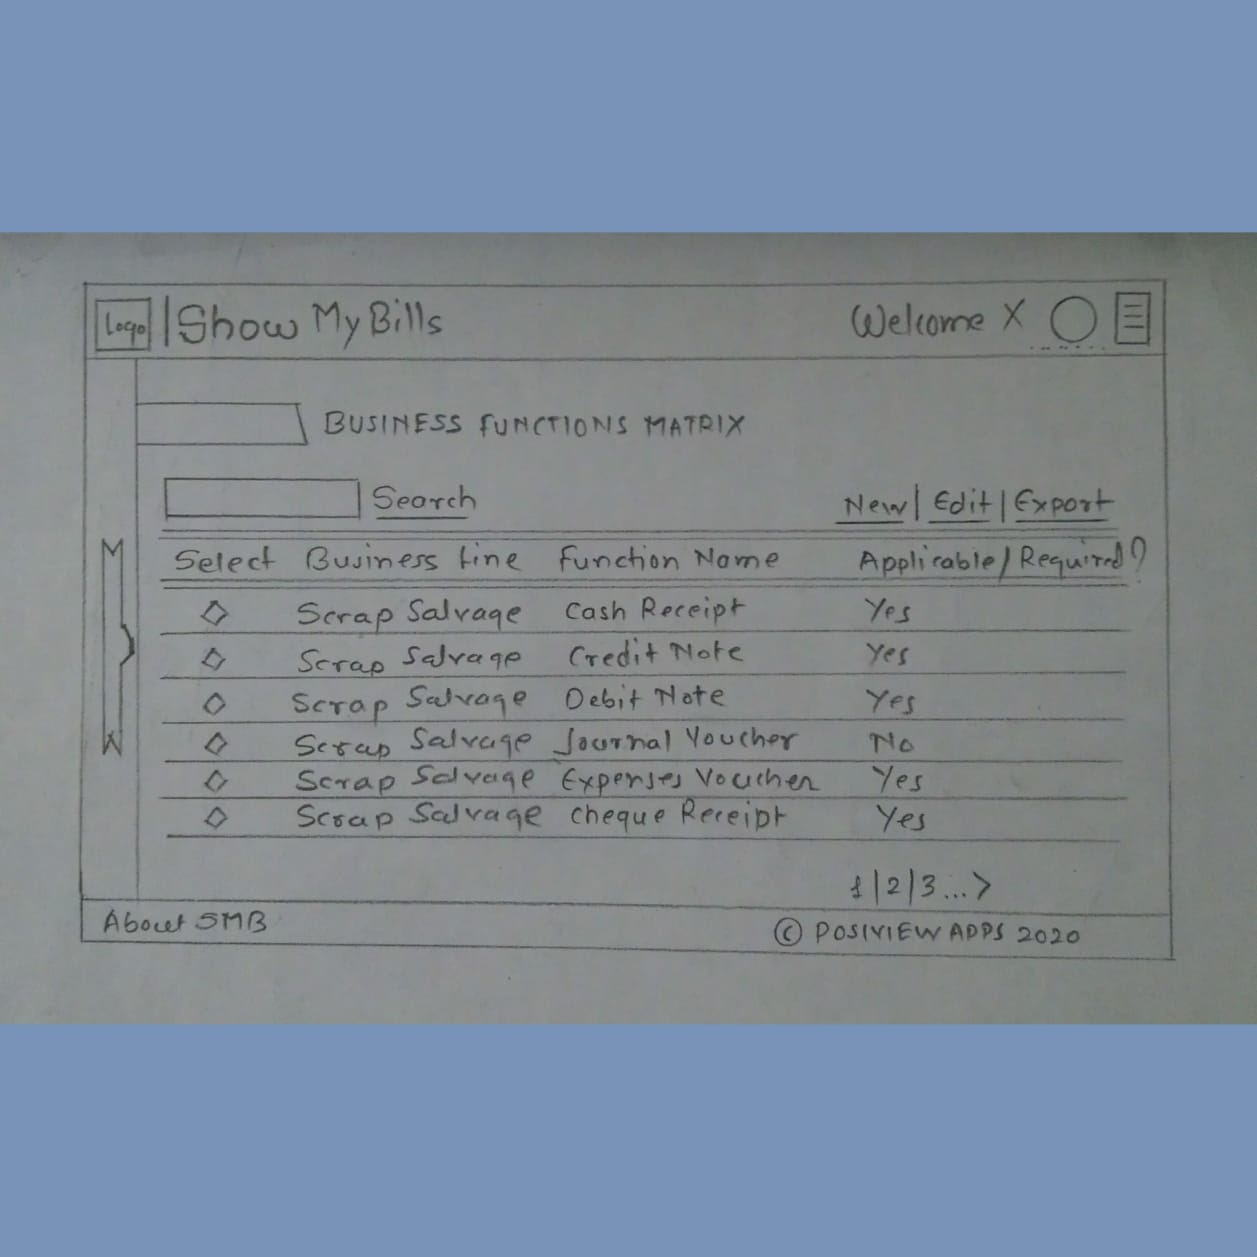 Logo | Show My Bills Welcome X
BUSINESS FUNCTIONS MATRIX
Search New | Edit | Export
Select Business Line Function Name Applicable / Required?
Scrap Salvage Cash Receipt Yes
Scrap Salvage Credit Note Yes
Scrap Salvage Debit Note Yes
Scrap Salvage Journal Voucher No
Scrap Salvage Expenses Voucher Yes
Scrap Salvage Cheque Receipt Yes
1|2|3...>
About SMB © POSIVIEW APPS 2020